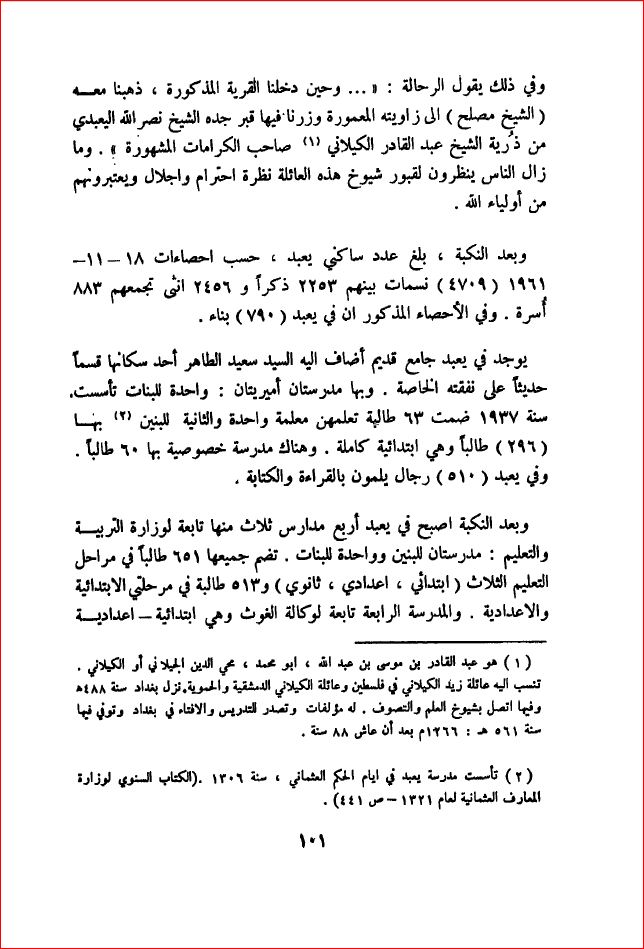 وفي ذلك يقول الرحالة : « ... وحين دخلنا القرية المذكورة ، ذهبنا معـــه
( الشيخ مصلح ) الى زاويته المعمورة وزرنا فيها قبر جده الشيخ نصر الله اليعبدي
من ذُرية الشيخ عبد القادر الكيلاني (١) صاحب الكرامات المشهورة » . وما
زال الناس ينظرون لقبور شيوخ هذه العائلة نظرة احترام واجلال ويعتبرونهم
من أولياء الله .
وبعد النكبة ، بلغ عدد ساكني يعبد ، حسب احصاءات ١٨ – ١١–
١٩٦١ ( ٤٧٠٩ ) نسمات بينهم ٢٢٥٣ ذكراً و ٢٤٥٦ انثى تجمعهم ٨٨٣
أسرة . وفي الأحصاء المذكور ان في يعبد ( ٧٩٠ ) بناء .
يوجد في يعبد جامع قديم أضاف اليه السيد سعيد الطاهر أحد سكانها قسماً
حديثاً على نفقته الخاصة . وبها مدرستان أميريتان : واحدة للبنات تأسست.
سنة ١٩٣٧ ضمت ٦٣ طالبة تعلمهن معلمة واحدة والثانية للبنين (٢) بهــا
( ٢٩٦ ) طالباً وهي ابتدائية كاملة . وهناك مدرسة خصوصية بها ٦٠ طالباً .
وفي يعبد ( ٥١٠ ) رجال يلمون بالقراءة والكتابة .
وبعد النكبة اصبح في يعبد أربع مدارس ثلاث منها تابعة لوزارة التربيـة
والتعليم : مدرستان للبنين وواحدة للبنات . تضم جميعها ٦٥١ طالباً في مراحل
التعليم الثلاث ( ابتدائي ، اعدادي ، ثانوي ) و٥١٣ طالبة في مرحلتي الابتدائية
والاعدادية . والمدرسة الرابعة تابعة لوكالة الغوث وهي ابتدائية – اعداديــة
( ١ ) هو عبد القادر بن موسى بن عبد الله ، ابو محمد ، محي الدين الجيلاني أو الكيلاني .
تنسب اليه عائلة زيد الكيلاني في فلسطين وعائلة الكيلاني الدمشقية والحموية. نزل بغداد سنة ٤٨٨ﻫ
وفيها اتصل بشيوخ العلم والتصوف . له مؤلفات وتصدر للتدريس والافتاء في بغداد وتوفي فيها
سنة ٥٦١ هـ : ١٢٦٦م بعد أن عاش ٨٨ سنة .
( ٢ ) تأسست مدرسة يعبد في ايام الحكم العثماني ، سنة ١٣٠٦ .(الكتاب السنوي لوزارة
المعارف العثمانية لعام ١٣٢١ – ص ٤٤١) .
١٠١